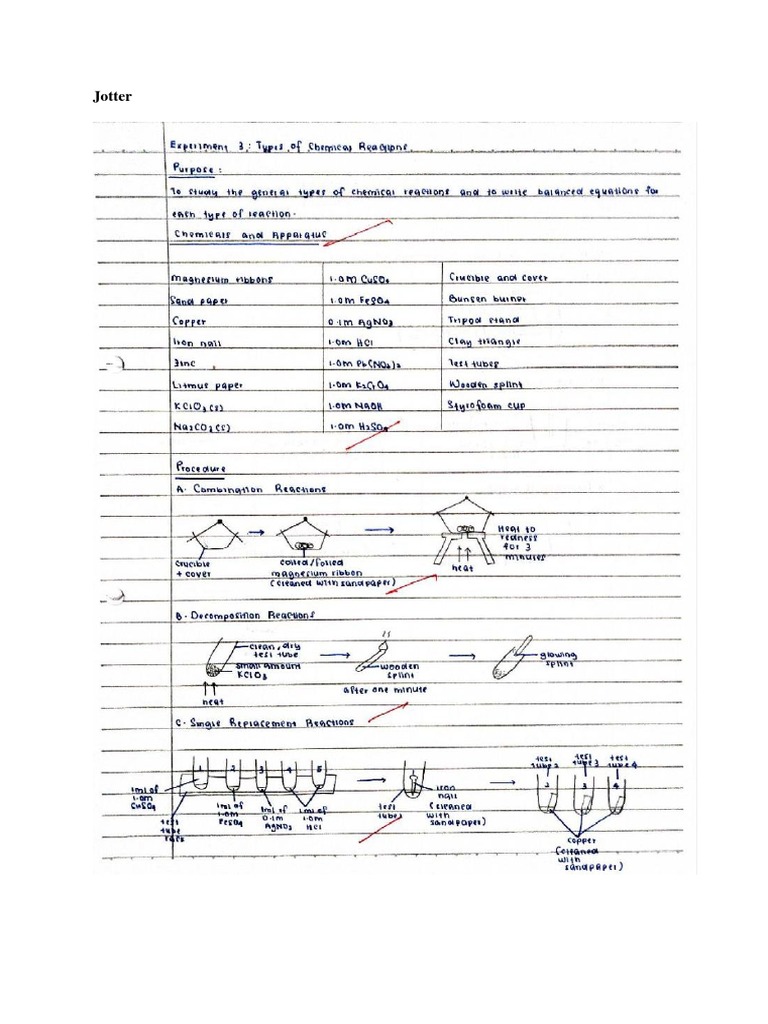 Jotter
Experiment 3 : Types of Chemical Reactions
Purpose :
To study the general types of chemical reactions and to write balanced equations for
each type of reaction.
Chemicals and Apparatus
Magnesium ribbons 1.0m CuSO4 Crucible and cover
Sand paper 1.0m FeSO4 Bunsen burner
Copper 0.1m AgNO3 Tripod stand
Iron nail 1.0m HCl Clay triangle
Zinc 1.0m Pb(NO3)2 Test tubes
Litmus paper 1.0m K2CrO4 Wooden splint
KClO3(s) 1.0m NaOH Styrofoam cup
Na2CO3(s) 1.0m H2SO4
Procedure
A. Combination Reactions
crucible
+ cover
coiled/foiled
magnesium ribbon
(cleaned with sandpaper)
heat
Heat to
redness
for 3
minutes
B. Decomposition Reactions
clean, dry
test tube
small amount
KClO3
heat
wooden
splint
after one minute
glowing
splint
C. Single Replacement Reactions
1 2 3 4 5
1ml of
1.0m
CuSO4
test
tube
1ml of
1.0m
FeSO4
1ml of
0.1m
AgNO3
1ml of
1.0m
HCl
test
iron
nail
(cleaned
with
sandpaper)
test
tube 2
test
tube 3
test
tube 4
2 3 4
copper
(cleaned
with
sandpaper)